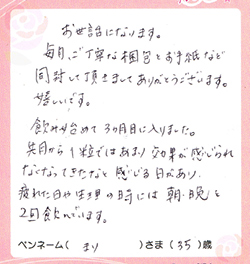 お世話になります。
毎月、ご丁寧な梱包とお手紙など
同封して頂きましてありがとうございます。
嬉しいです。
飲み始めて3カ月目に入りました。
先月から1粒ではあまり効果が感じられ
なくなってきたなと感じる日があり、
疲れた日や生理の時には朝・晩と
2回飲んでいます。
ペンネーム( まり )さま(35)歳